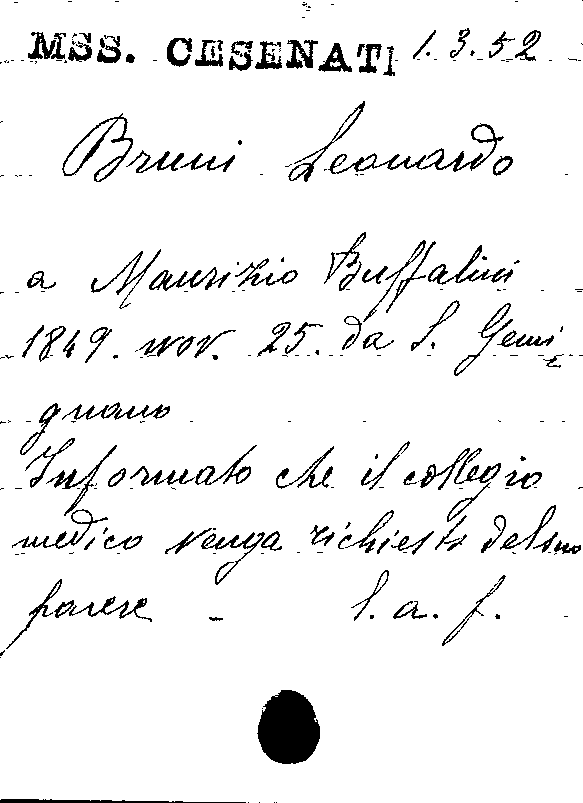 MSS. CESENATI 1.3.52
Bruni Leonardo
a Maurizio Buffalini
1849. nov. 25. da S. Gemi
gnano
Informato che il collegio
medico venga richiesto del suo
parere - l. a. f.